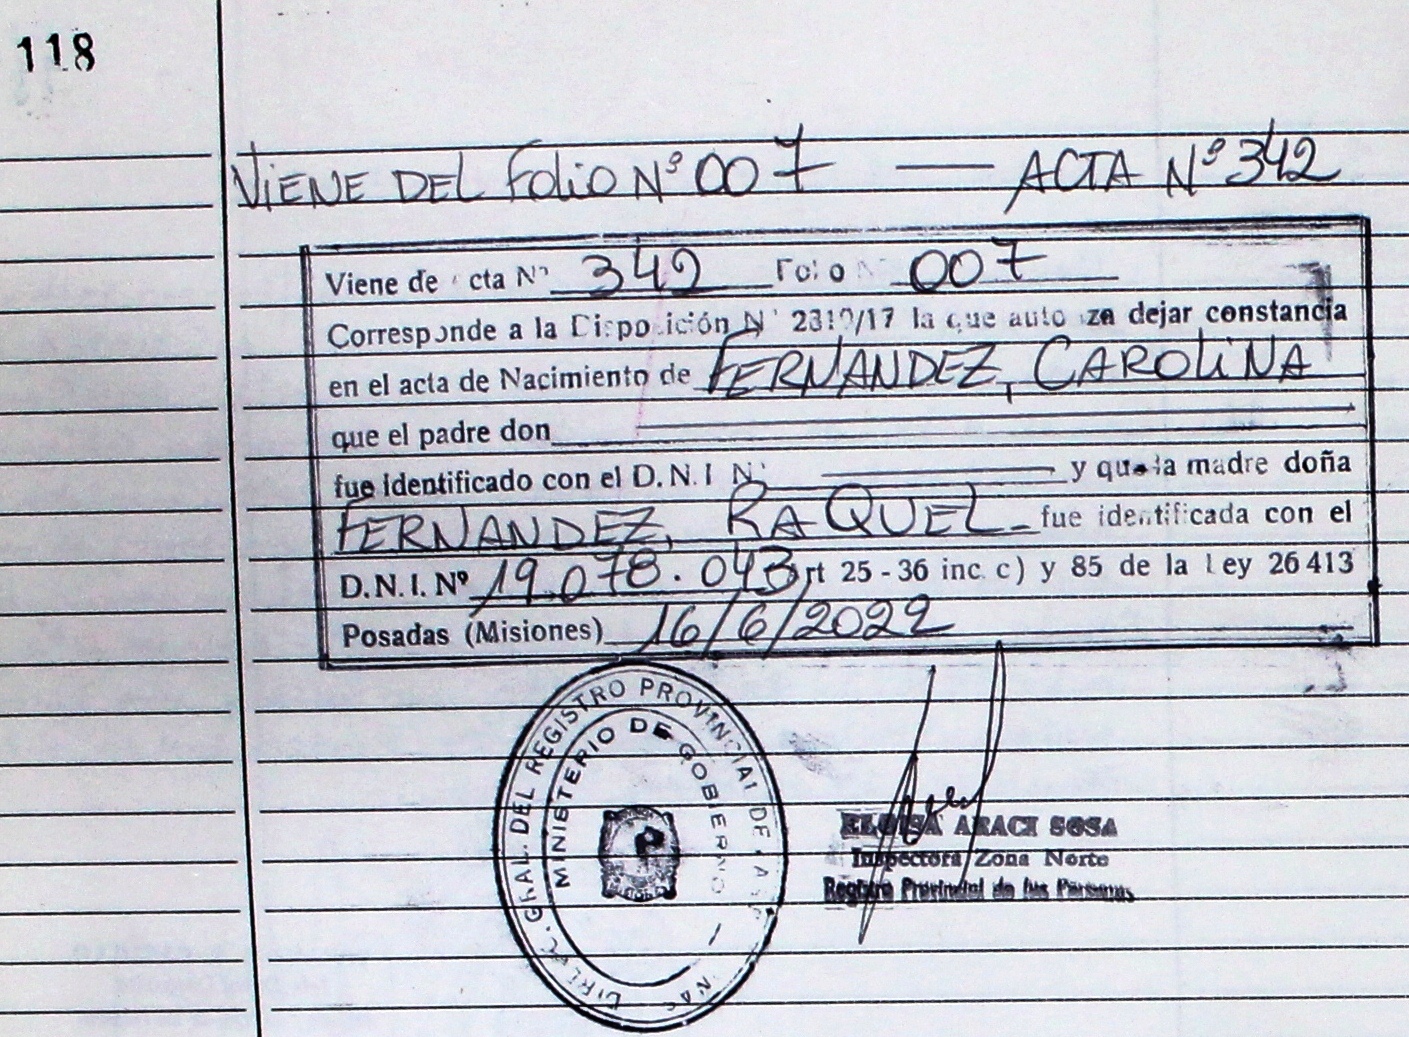 118
VIENE DEL FOLIO Nº 007 — ACTA Nº 342
Viene de cta Nº 342 Folio Nº 007
Corresponde a la Disposición Nº 2310/17 la que autoriza dejar constancia
en el acta de Nacimiento de FERNANDEZ, CAROLINA
que el padre don
fue identificado con el D.N.I Nº y que la madre doña
FERNANDEZ, RAQUEL fue identificada con el
D.N.I. Nº 19.078.043 rt 25 - 36 inc. c) y 85 de la Ley 26 413
Posadas (Misiones) 16/6/2022
GRAL. DEL REGISTRO PROVINCIAL DE
MINISTERIO DE GOBIERNO
ELOISA ARACI SOSA
Inspectora Zona Norte
Registro Provincial de las Personas